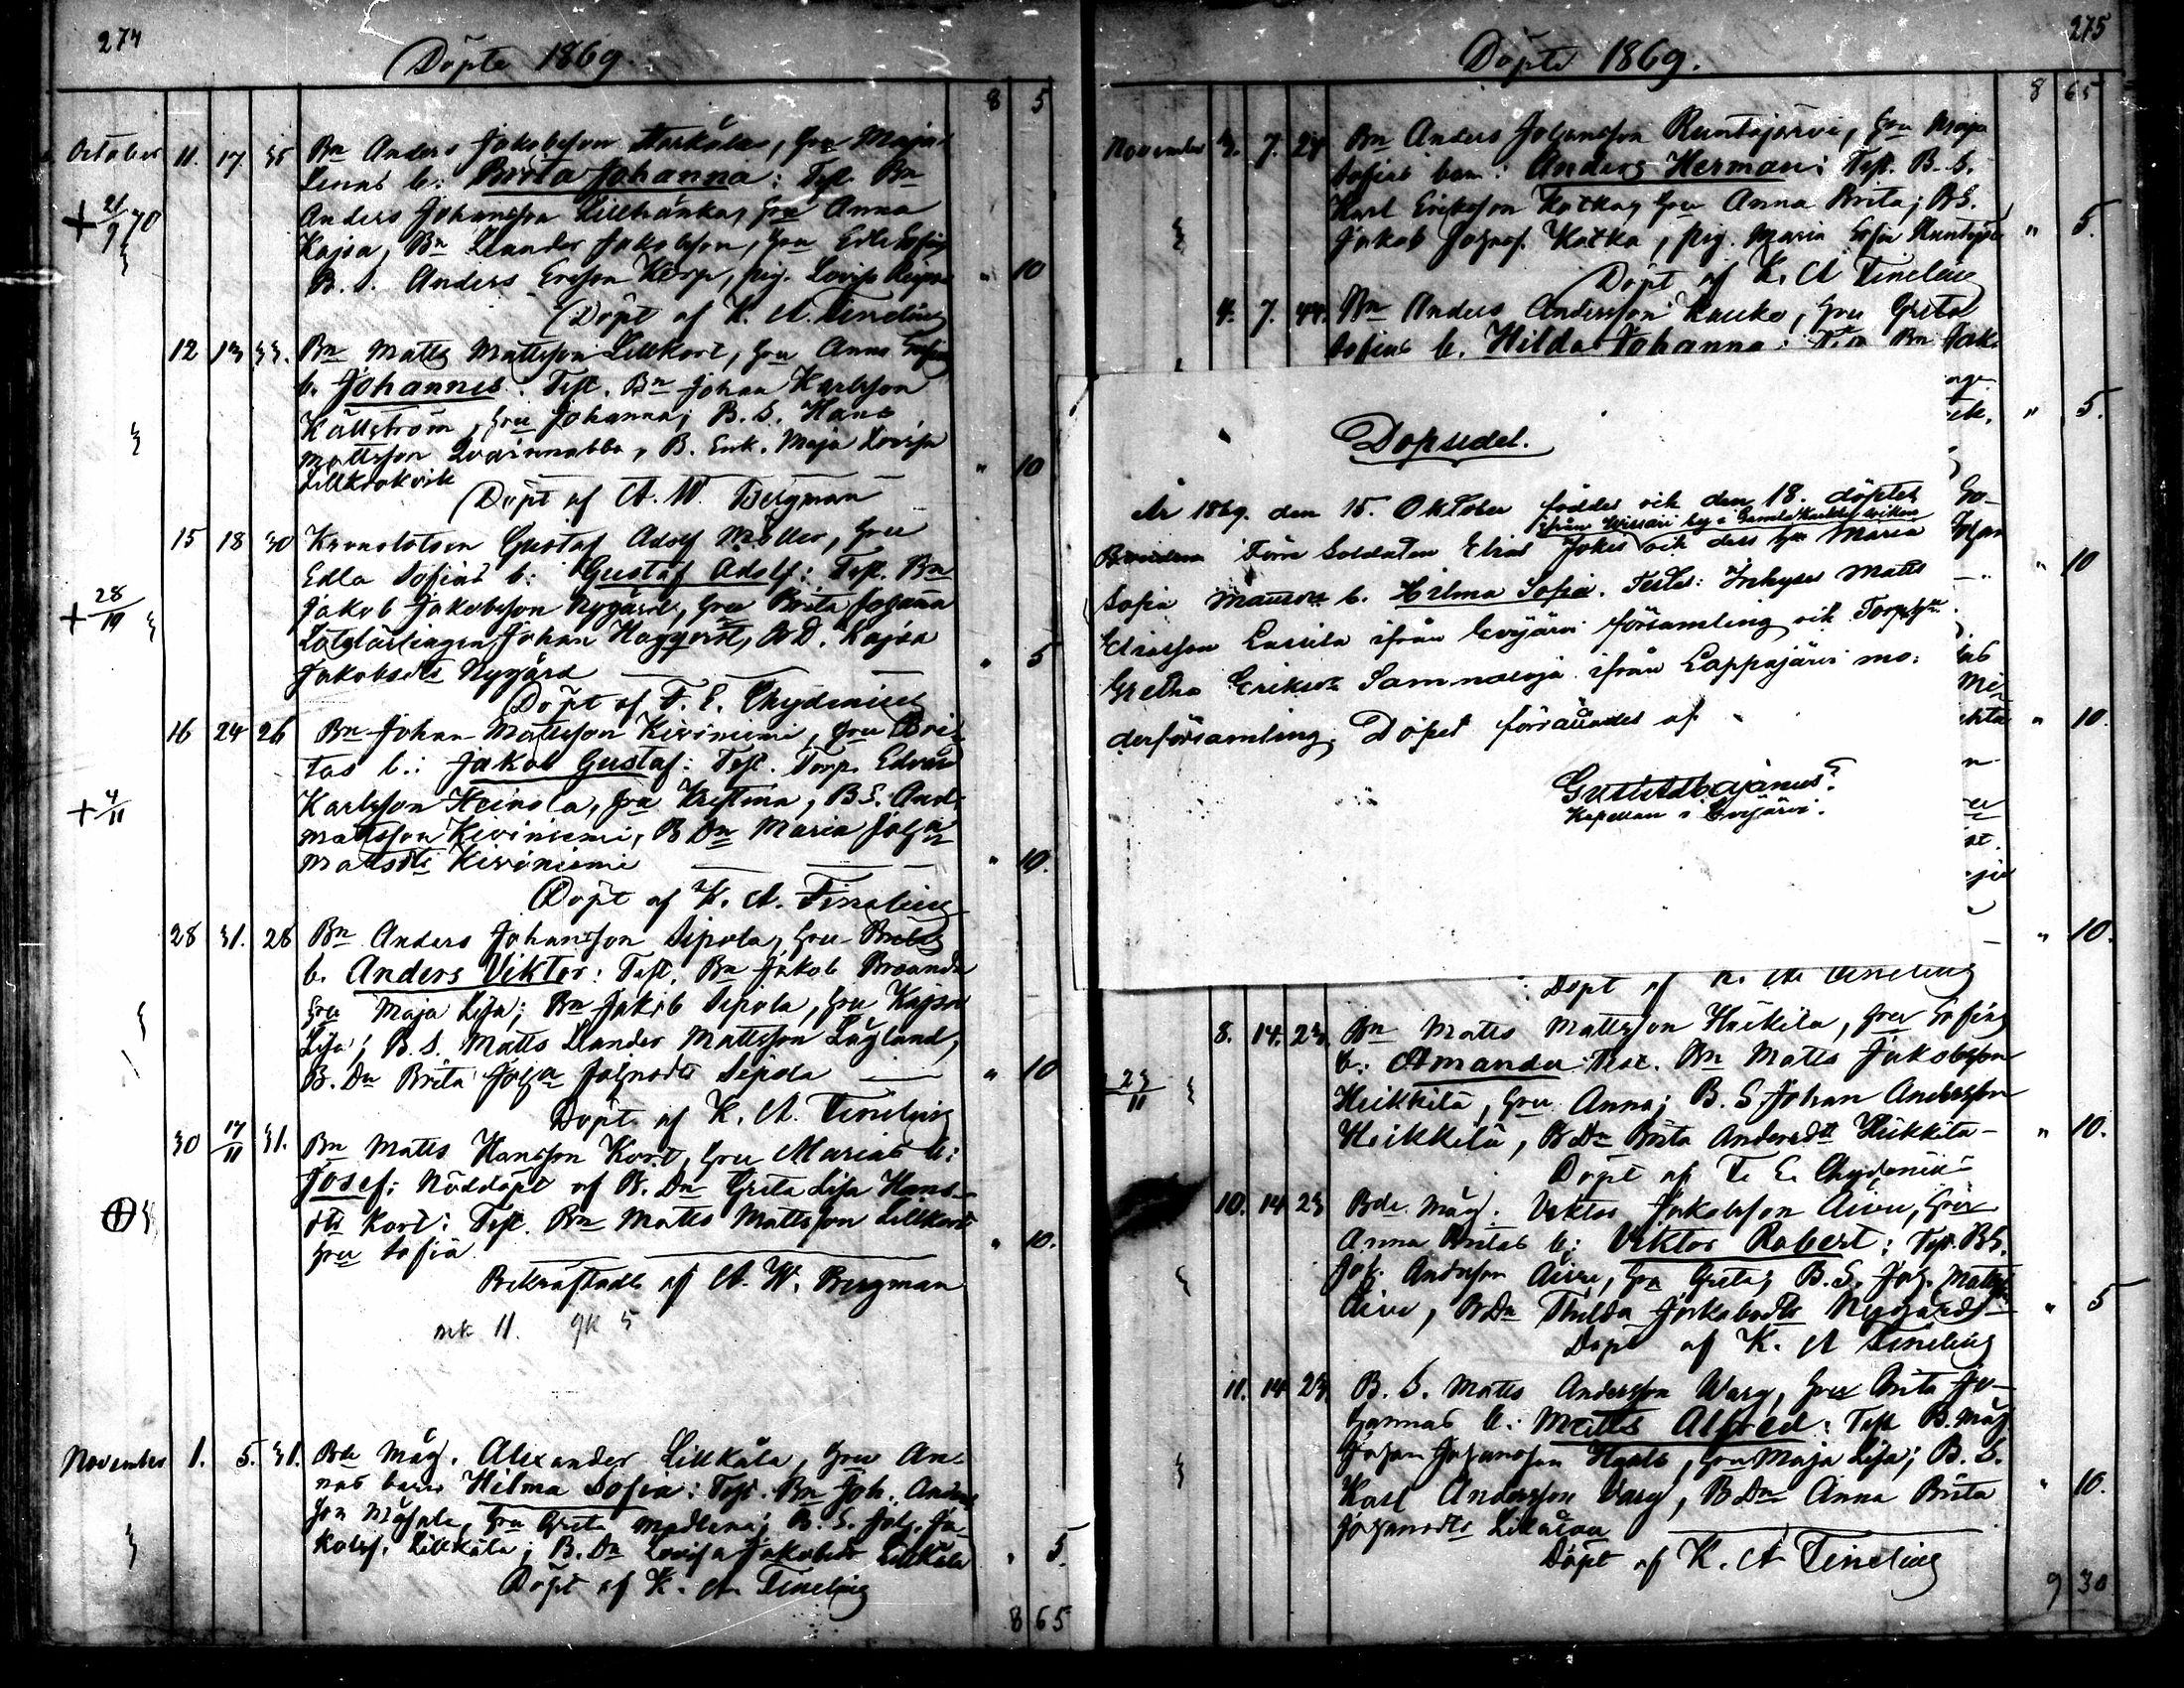 274
Döpte 1869.
8 5
October 11. 17. 35 Bn Anders Jakobsson, hru Maja
Lenas b: Brita Johanna: Test. Bn
+ 21/9 70 Anders Johansson Lillbränka, hru Anna
Kajsa, Bn Leander Jakobsson, hru Edla Sofia
B. S. Anders Ersson Korp, pig. Lovisa " 10
Döpt af K. A. Fineling
12 13 33. Bn Matts Mattsson Lillkort, hru Anna Sofias
b. Johannes: Test. Bn Johan Karlsson
Källström, hru Johanna; B. S. Hans
Mattsson, B. Enk. Maja Lovisa
Lillkrokvik " 10
Döpt af A. W. Bergman
15 18 30 Kronolotsen Gustaf Adolf Möller, hru
Edla Sofias b: Gustaf Adolf: Test. Bn
+ 28/19 Jakob Jakobsson Nygård, hru Brita Johanna
Lotslärlingen Johan Haggqvist, B D. Kajsa
Jakobsdtr Nygård " 5
Döpt af F. E. Chydenius
16 24 26 Bn Johan Mattsson Kiviniemi, hru Bri-
tas b.: Jakob Gustaf: Test. Torp. Edvard
+ 4/11 Karlsson Heinola, hru Kristina, B S. And.
Mattsson Kiviniemi, B Dn Maria Joha
Mattsdtr Kiviniemi " 10.
Döpt af K. A. Fineling
28 31. 28 Bn Anders Johansson Sipola, hru Britas
b. Anders Viktor: Test. Bn Jakob Broända
hru Maja Lisa; Bn Jakob Sipola, hru Kajsa
Lisa; B. S. Matts Leander Mattsson Lågland,
B. Dn Brita Joha Johsdtr Sipola " 10
Döpt af K. A. Fineling
30 14/11 31. Bn Matts Hansson Kort, hru Marias b:
Josef: Nöddöpt af B. Dn Greta Lisa Hans-
dtr Kort: Test. Bn Matts Mattsson Lillkort
hru Sofia. " 10.
Bekräftadt af A. W. Bergman
mk 11. gk 5
November 1. 5. 31. Bde Måg. Alexander Lillkåla, hru An-
nas barn Hilma Sofia: Test. Bn Joh. Anders
son, hru Greta Madlena; B. S. Joh. Ja-
kobss. Lillkåla; B. Dn Lovisa Jakobsdr Lillkåla " 5.
Döpt af K. A. Fineling
8 65
275
Döpte 1869.
8 65
November 3. 7. 24 Bn Anders Johansson Runtujärvi, hru Maja
Sofias barn: Anders Herman: Test. B. S.
Karl Eriksson Katka, hru Anna Brita; B S.
Jakob Johans. Katka, pig. Maria Sofia Runtujär " 5.
Döpt af K. A Fineling
4. 7. 44. Bn Anders Andersson Kauko, hru Greta
Sofias b. Hilda Johanna: Test Bn Jak.
" 5.
Dopsedel.
År 1869. den 15. Oktober föddes och den 18. döptes
ifrån Wissari by i Gamla Karleby socken
Förra Soldaten Elias Jokes och dess hru Maria
Sofia Mansdtr b. Hilma Sofia. Testes: Inhyses Matts
Eliasson Lassila ifrån Evijärvi församling och Torphu
Gretha Eriksdr Sammaloja ifrån Lappajärvi mo-
derförsamling. Döpet förrättades af
Kapellan i Evijärvi.
" 10
" 10.
" 10.
Döpt af K. A. Fineling
8. 14. 23. Bn Matts Mattsson Heikkila, hru Sofias
b. Amanda: Test. Bn Matts Jakobsson
23/11 Heikkilä, hru Anna; B. S Johan Andersson
Heikkilä, B Dn Brita Andersdtr Heikkilä " 10.
Döpt af F. E. Chydenius
10. 14 23 Bde Måg. Viktor Jakobsson Aivu, hru
Anna Britas b: Viktor Robert: Test. B S.
Joh. Andersson Aivu, hru Greta; B. S. Joh. Mattss
Aivu, B Dn Thilda Jakobsdtr Nygård " 5
Döpt af K. A Fineling
11. 14 24. B. S. Matts Andersson Warg, hru Brita Jo-
hannas b.: Matts Alfred: Test B. Måg
Johan Johansson, hru Maja Lisa; B. S.
Karl Andersson Varg, B Dn Anna Brita " 10.
Johansdtr
Döpt af K. A Fineling
9 30